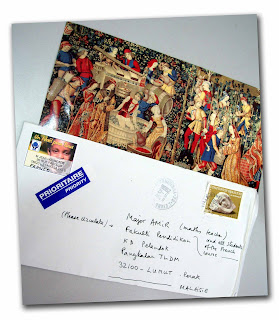 FRANCE
PRIORITAIRE
PRIORITY
(Please circulate) →
Major AMIR
and all students
of the French
course
Fakulti Pendidikan
KD Pelandok
Pangkalan TLDM
32100 - LUMUT Perak
MALAISIE